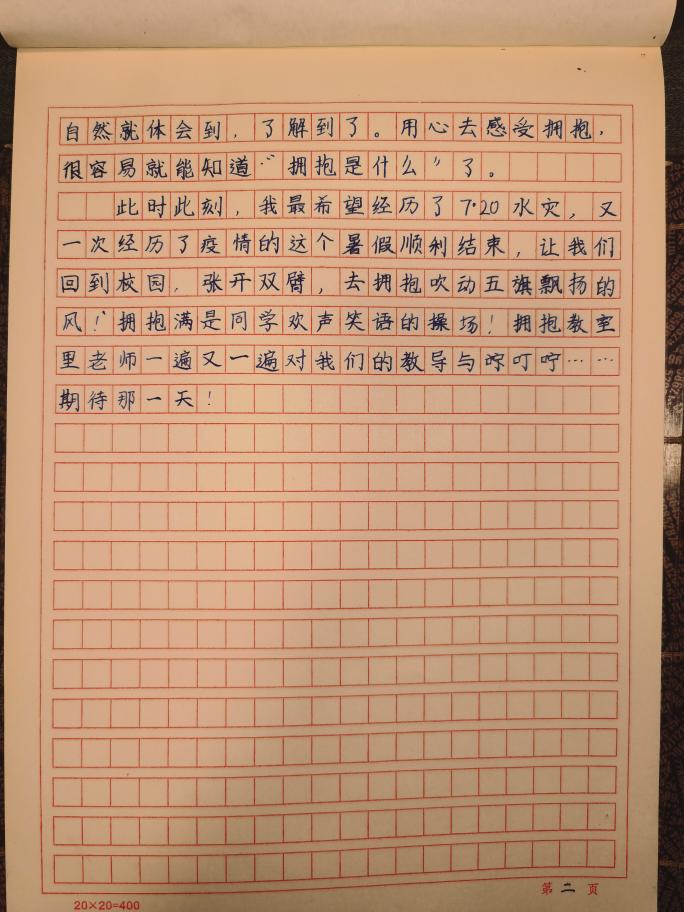 自然就体会到，了解到了。用心去感受拥抱，
很容易就能知道“拥抱是什么”了。
此时此刻，我最希望经历了7·20水灾，又
一次经历了疫情的这个暑假顺利结束，让我们
回到校园，张开双臂，去拥抱吹动五旗飘扬的
风！拥抱满是同学欢声笑语的操场！拥抱教室
里老师一遍又一遍对我们的教导与叮咛……
期待那一天！
第二页
20×20=400